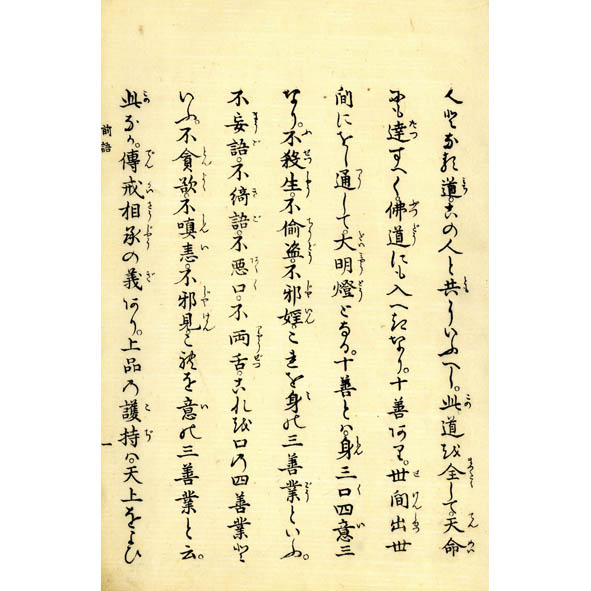 人となる道。この人と共にいふべし。此道を全して。天命
にも達すべく。佛道にも入べきなり。十善あり。世間出世
間におし通して。大明燈となる。十善とは。身三口四意三
なり。不殺生。不偸盗。不邪婬。これを身の三善業といふ。
不妄語。不綺語。不悪口。不両舌。これを口の四善業と
いふ。不貪欲。不瞋恚。不邪見。これを意の三善業と云。
傳戒相承の義あり。上品の護持は。天上をよび
前語
一